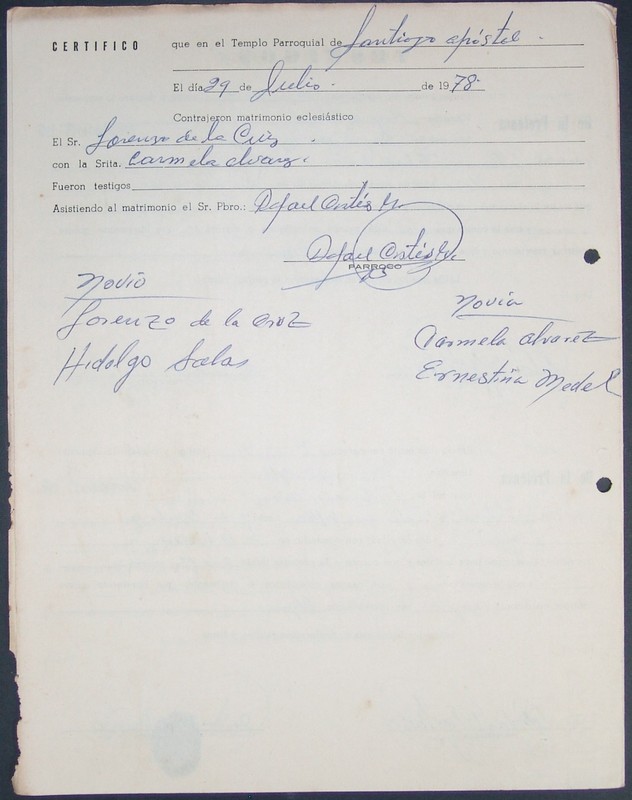 CERTIFICO que en el Templo Parroquial de Santiago apóstol.
El día 29 de Julio. de 1978.
Contrajeron matrimonio eclesiástico
El Sr. Lorenzo de la Cruz.
con la Srita. Carmela Alvarez.
Fueron testigos
Asistiendo al matrimonio el Sr. Pbro.: Rafael Cortés M.
Rafael Cortés M.
PARROCO
Novio
Lorenzo de la Cruz
Hidalgo Salas
Novia
Carmela Alvarez
Ernestina Medel